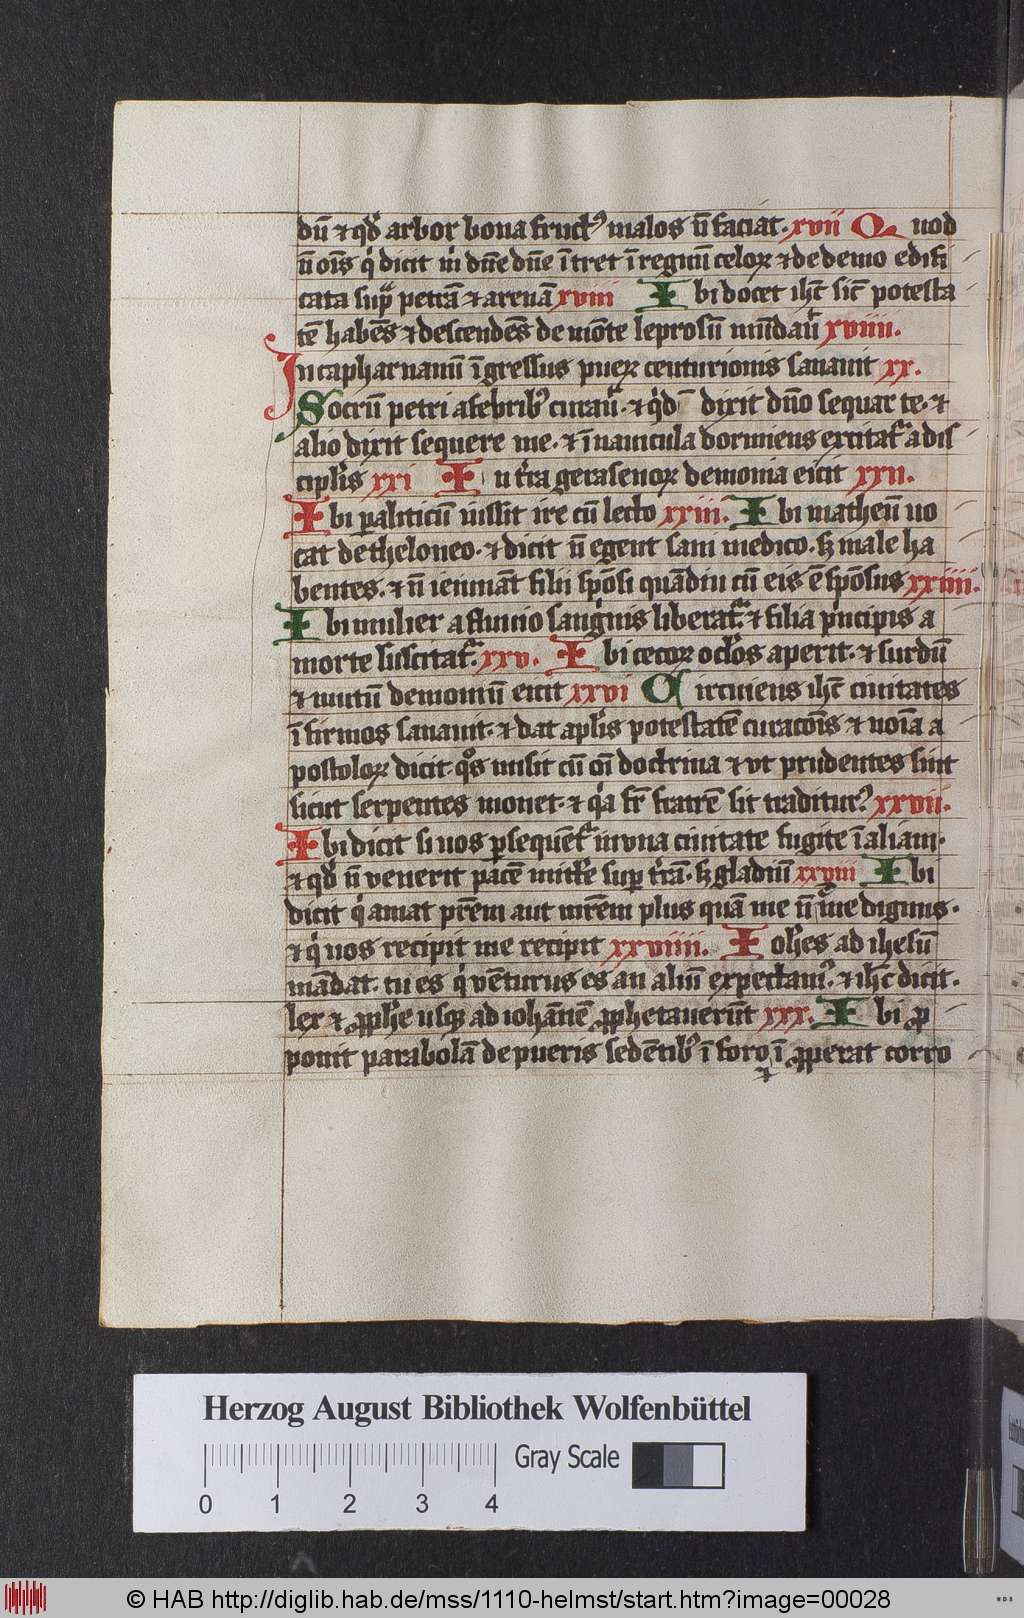 dū ⁊ qđ arbor bona fruct⁹ malos n̄ faciat. xvii Quod
n̄ oīs q̇ dicit ṁ dn̄e dn̄e ītret ī regnū celoꝝ ⁊ de demo edifi
cata supͣ petrā ⁊ arenā xviii Ibi docet ihc̄ sic̄ potesta
tē habēs ⁊ descendēs de mōte leprosū mūdau̇ xviiii.
In capharnaum īgressus pueꝝ centurionis sanauit xx.
Socrū petri a febrib⁹ curau̇. ⁊ q̇d dixit dn̄o sequar te. ⁊
alio dixit sequere me. ⁊ ī nauicula dormiens excitat᷑ a dis
ciplis xxi In tr̄a gerasenoꝝ demonia eicit xxii.
Ibi paliticū iussit ire cū lecto xxiii. Ibi matheū uo
cat de theloneo. ⁊ dicit n̄ egent sani medico. sꝫ male ha
bentes. ⁊ n̄ ieiunāt filii spōsi quādiu cū eis ē spōsus xxiiii.
Ibi mulier a fluuio sanguinis liberat᷑. ⁊ filia pͥncipis a
morte suscitat᷑. xxv. Ibi cecoꝝ oclos aperit. ⁊ surdū
⁊ mutū demoniū eicit xxvi Circuiens ihc̄ ciuitates
ī firmos sanauit. ⁊ dat aplis potestatē curacōis ⁊ noīa a
postoloꝝ dicit. qͦs misit cū oī doctrina ⁊ vt prudentes sint
sicut serpentes monet. ⁊ qͥa fr̄ fratrē sit traditur⁹ xxvii.
Ibi dicit si uos ꝑsequēt᷑ in vna ciuitate fugite ī aliam.
⁊ qđ n̄ venerit pacē mittere suꝑ tr̄ā. sꝫ gladiū xxviii Ibi
dicit q̇ amat pr̄em aut mr̄em plus quā me n̄ ē me dignus.
⁊ q̇ uos recipit me recipit xxviiii. Iohes ad ihesū
mādat. tu es q̇ vēturus es an aliū expectam⁹. ⁊ ihc̄ dicit.
lex ⁊ ꝓphe usqꝫ ad iohānē ꝓphetauerūt xxx. Ibi ꝓ
ponit parabolā de pueris sedētib⁹ ī foro ⁊ ī ꝓperat corro
Herzog August Bibliothek Wolfenbüttel
0 1 2 3 4 Gray Scale
© HAB http://diglib.hab.de/mss/1110-helmst/start.htm?image=00028